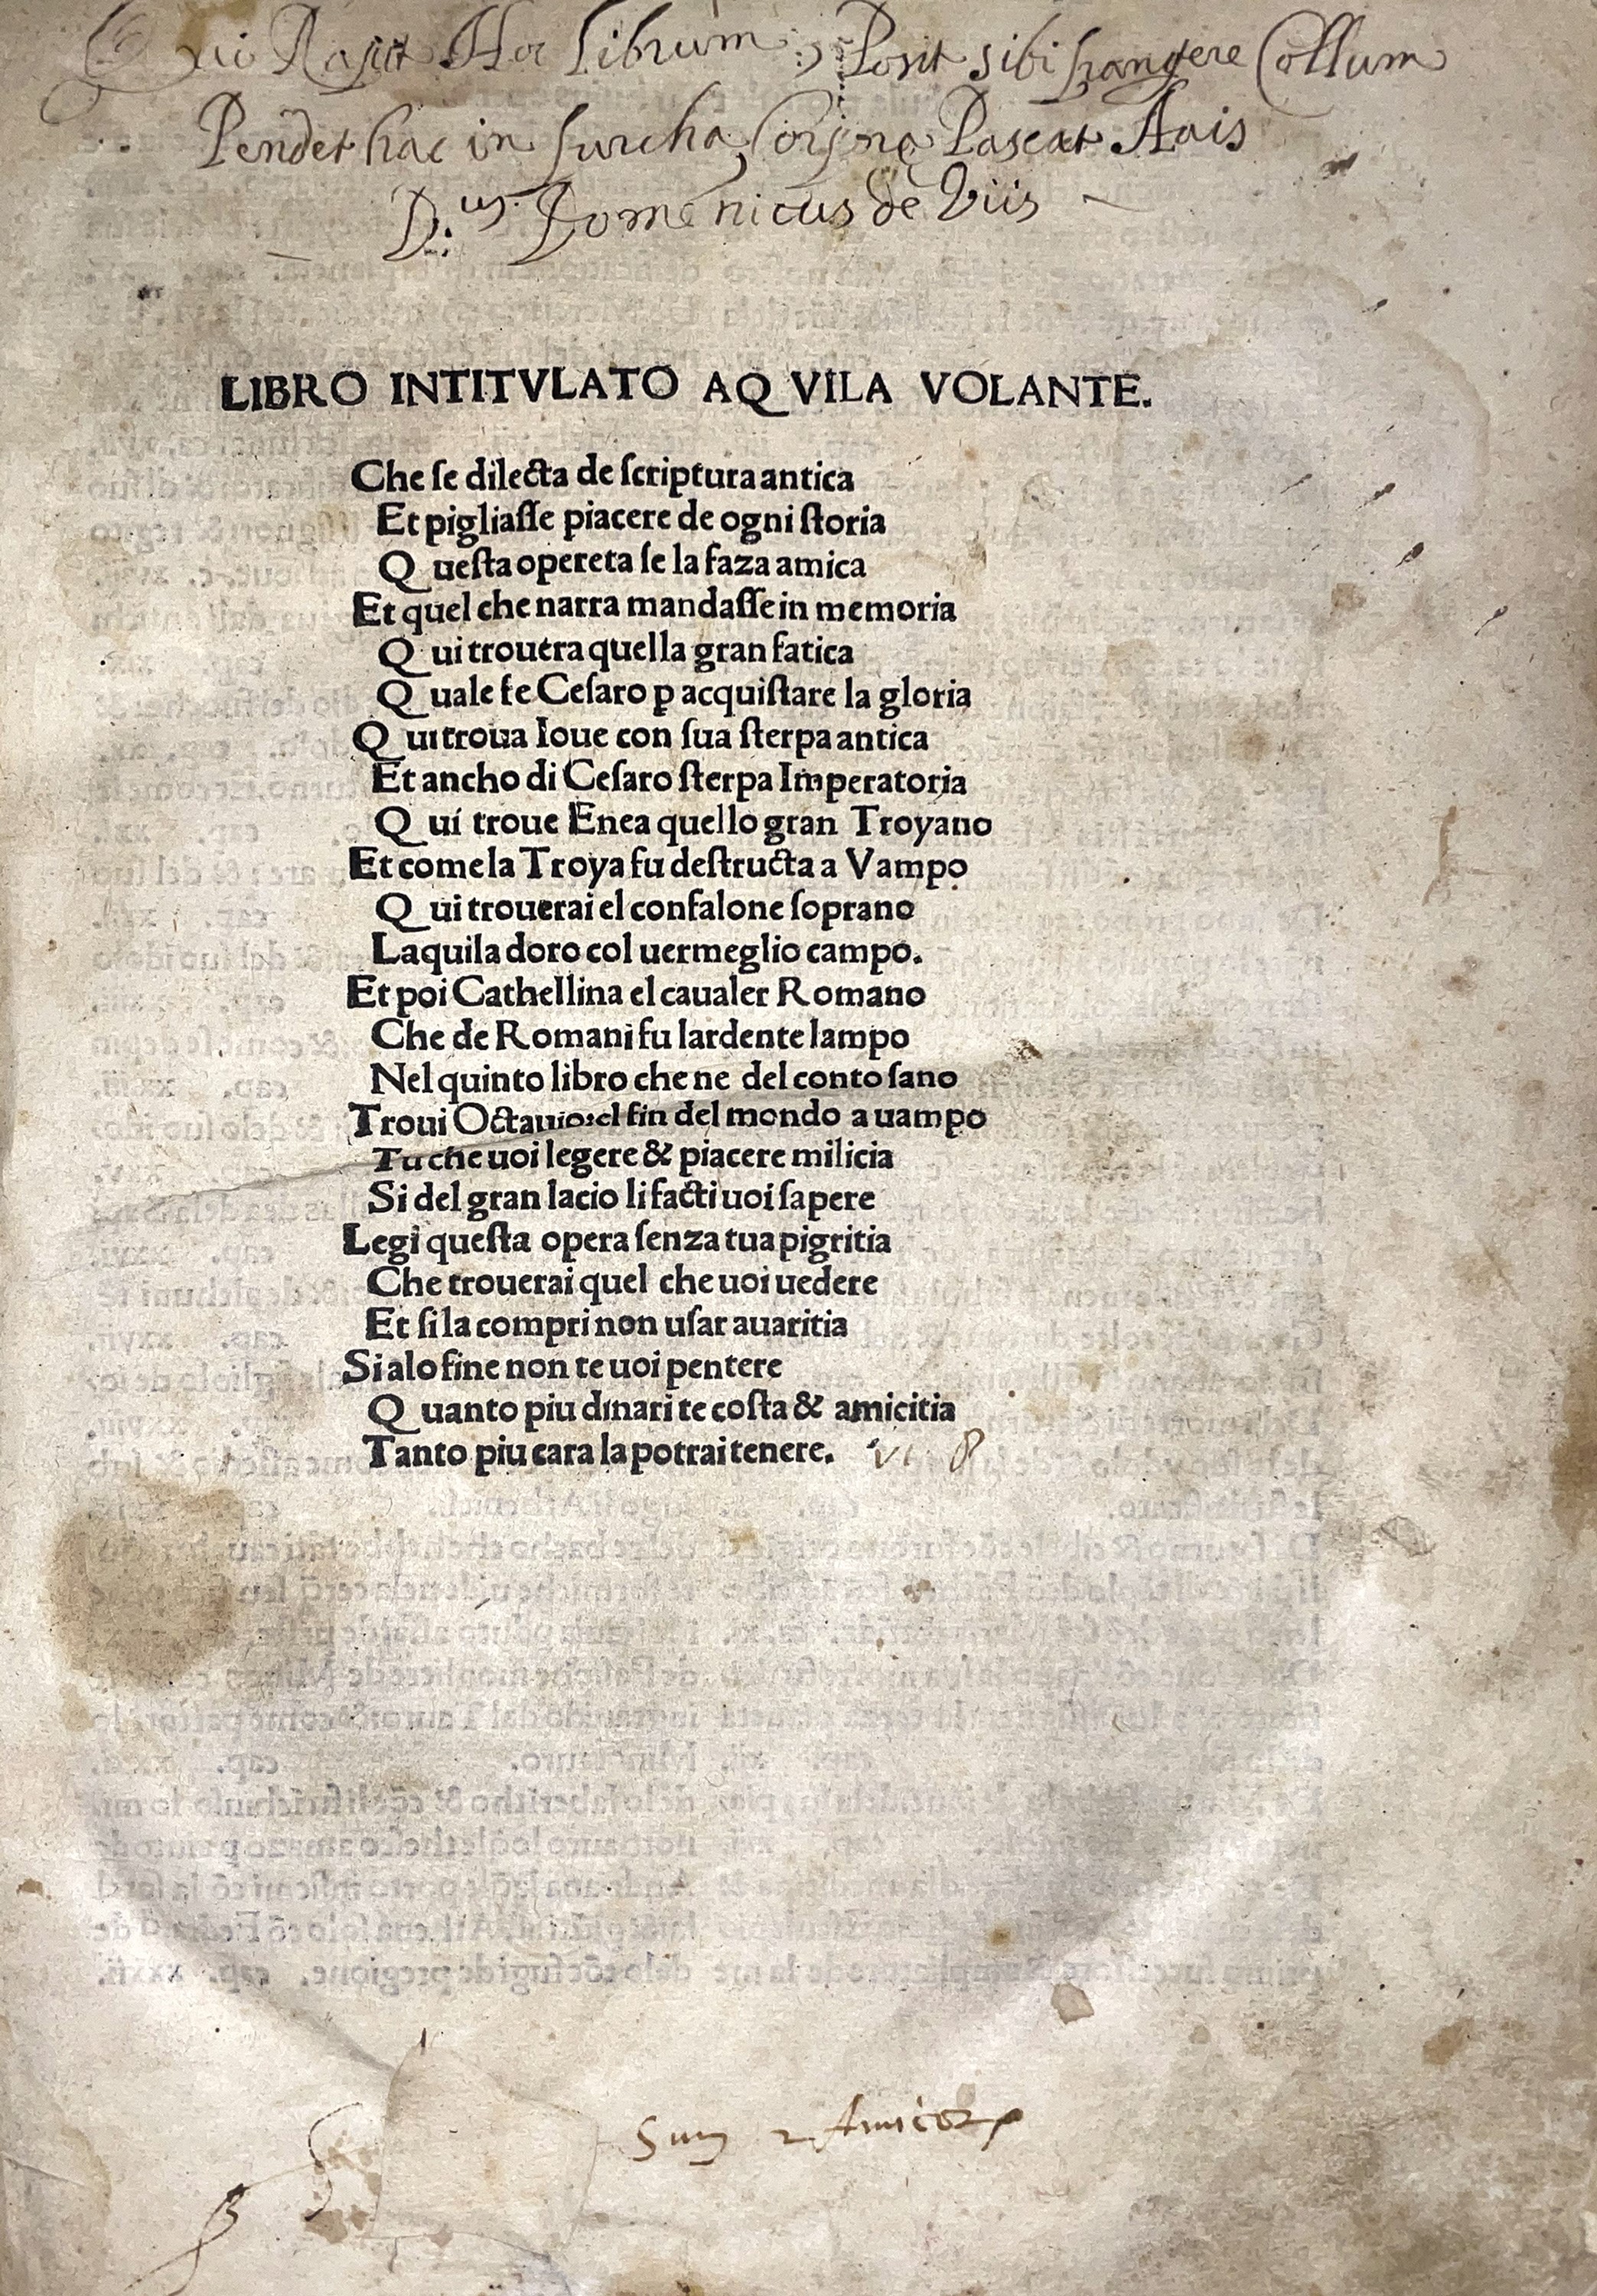 Qui Rapit Hoc Librum, Posit sibi frangere Collum
Pendet hac in furcha, Corpne Pascat Auis
D:us Domenicus de Viis
LIBRO INTITVLATO AQVILA VOLANTE.
Che ſe dilecta de ſcriptura antica
Et pigliaſſe piacere de ogni ſtoria
Queſta opereta ſe la faza amica
Et quel che narra mandaſſe in memoria
Qui trouera quella gran fatica
Quale fe Ceſaro p̱ acquiſtare la gloria
Qui troua Ioue con ſua ſterpa antica
Et ancho di Ceſaro ſterpa Imperatoria
Qui troue Enea quello gran Troyano
Et come la Troya fu deſtructa a Vampo
Qui trouerai el confalone ſoprano
Laquila doro col uermeglio campo.
Et poi Cathellina el caualer Romano
Che de Romani fu lardente lampo
Nel quinto libro che ne del conto ſano
Troui Octauio:el fin del mondo a uampo
Tu che uoi legere & piacere milicia
Si del gran lacio li facti uoi ſapere
Legi queſta opera ſenza tua pigritia
Che trouerai quel che uoi uedere
Et ſi la compri non uſar auaritia
Si alo fine non te uoi pentere
Quanto piu dinari te coſta & amicitia
Tanto piu cara la potrai tenere.